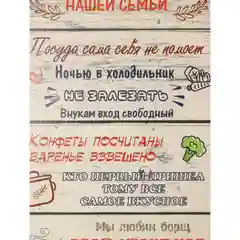 НАШЕЙ СЕМЬИ
Посуда сама себя не помоет
Ночью в холодильник
НЕ ЗАЛЕЗАТЬ
Внукам вход свободный
КОНФЕТЫ ПОСЧИТАНЫ
ВАРЕНЬЕ ВЗВЕШЕНО
КТО ПЕРВЫЙ ПРИШЕЛ
ТОМУ ВСЕ
САМОЕ ВКУСНОЕ
Мы любим борщ